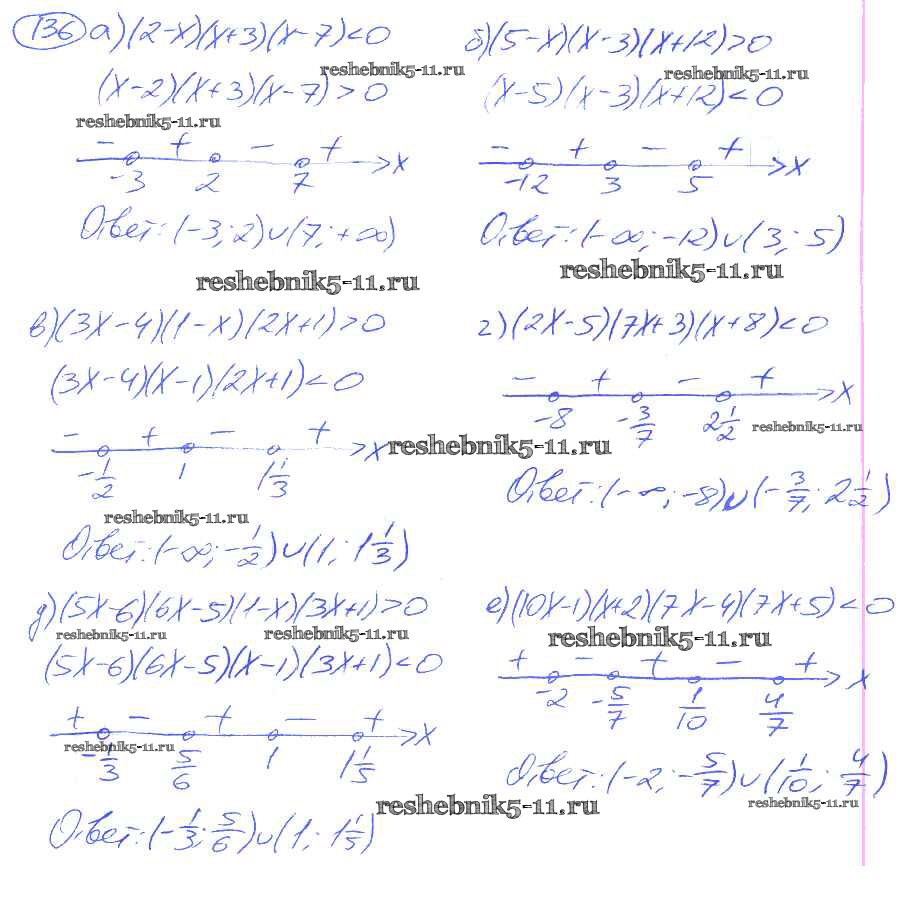 136 а) (2-x)(x+3)(x-7)<0
reshebnik5-11.ru
(x-2)(x+3)(x-7)>0
reshebnik5-11.ru
- + - + x
-3 2 7
Ответ: (-3; 2)∪(7; +∞)
reshebnik5-11.ru
б) (5-x)(x-3)(x+12)>0
reshebnik5-11.ru
(x-5)(x-3)(x+12)<0
- + - + x
-12 3 5
Ответ: (-∞; -12)∪(3; 5)
reshebnik5-11.ru
в) (3x-4)(1-x)(2x+1)>0
(3x-4)(x-1)(2x+1)<0
- + - + x
reshebnik5-11.ru
-1/2 1 1 1/3
reshebnik5-11.ru
Ответ: (-∞; -1/2)∪(1; 1 1/3)
г) (2x-5)(7x+3)(x+8)<0
- + - + x
-8 -3/7 2 1/2
reshebnik5-11.ru
Ответ: (-∞; -8)∪(-3/7; 2 1/2)
д) (5x-6)(6x-5)(1-x)(3x+1)>0
reshebnik5-11.ru reshebnik5-11.ru
(5x-6)(6x-5)(x-1)(3x+1)<0
+ - + - + x
reshebnik5-11.ru
-1/3 5/6 1 1 1/5
Ответ: (-1/3; 5/6)∪(1; 1 1/5)
reshebnik5-11.ru
е) (10x-1)(x+2)(7x-4)(7x+5)<0
reshebnik5-11.ru
+ - + - + x
-2 -5/7 1/10 4/7
Ответ: (-2; -5/7)∪(1/10; 4/7)
reshebnik5-11.ru